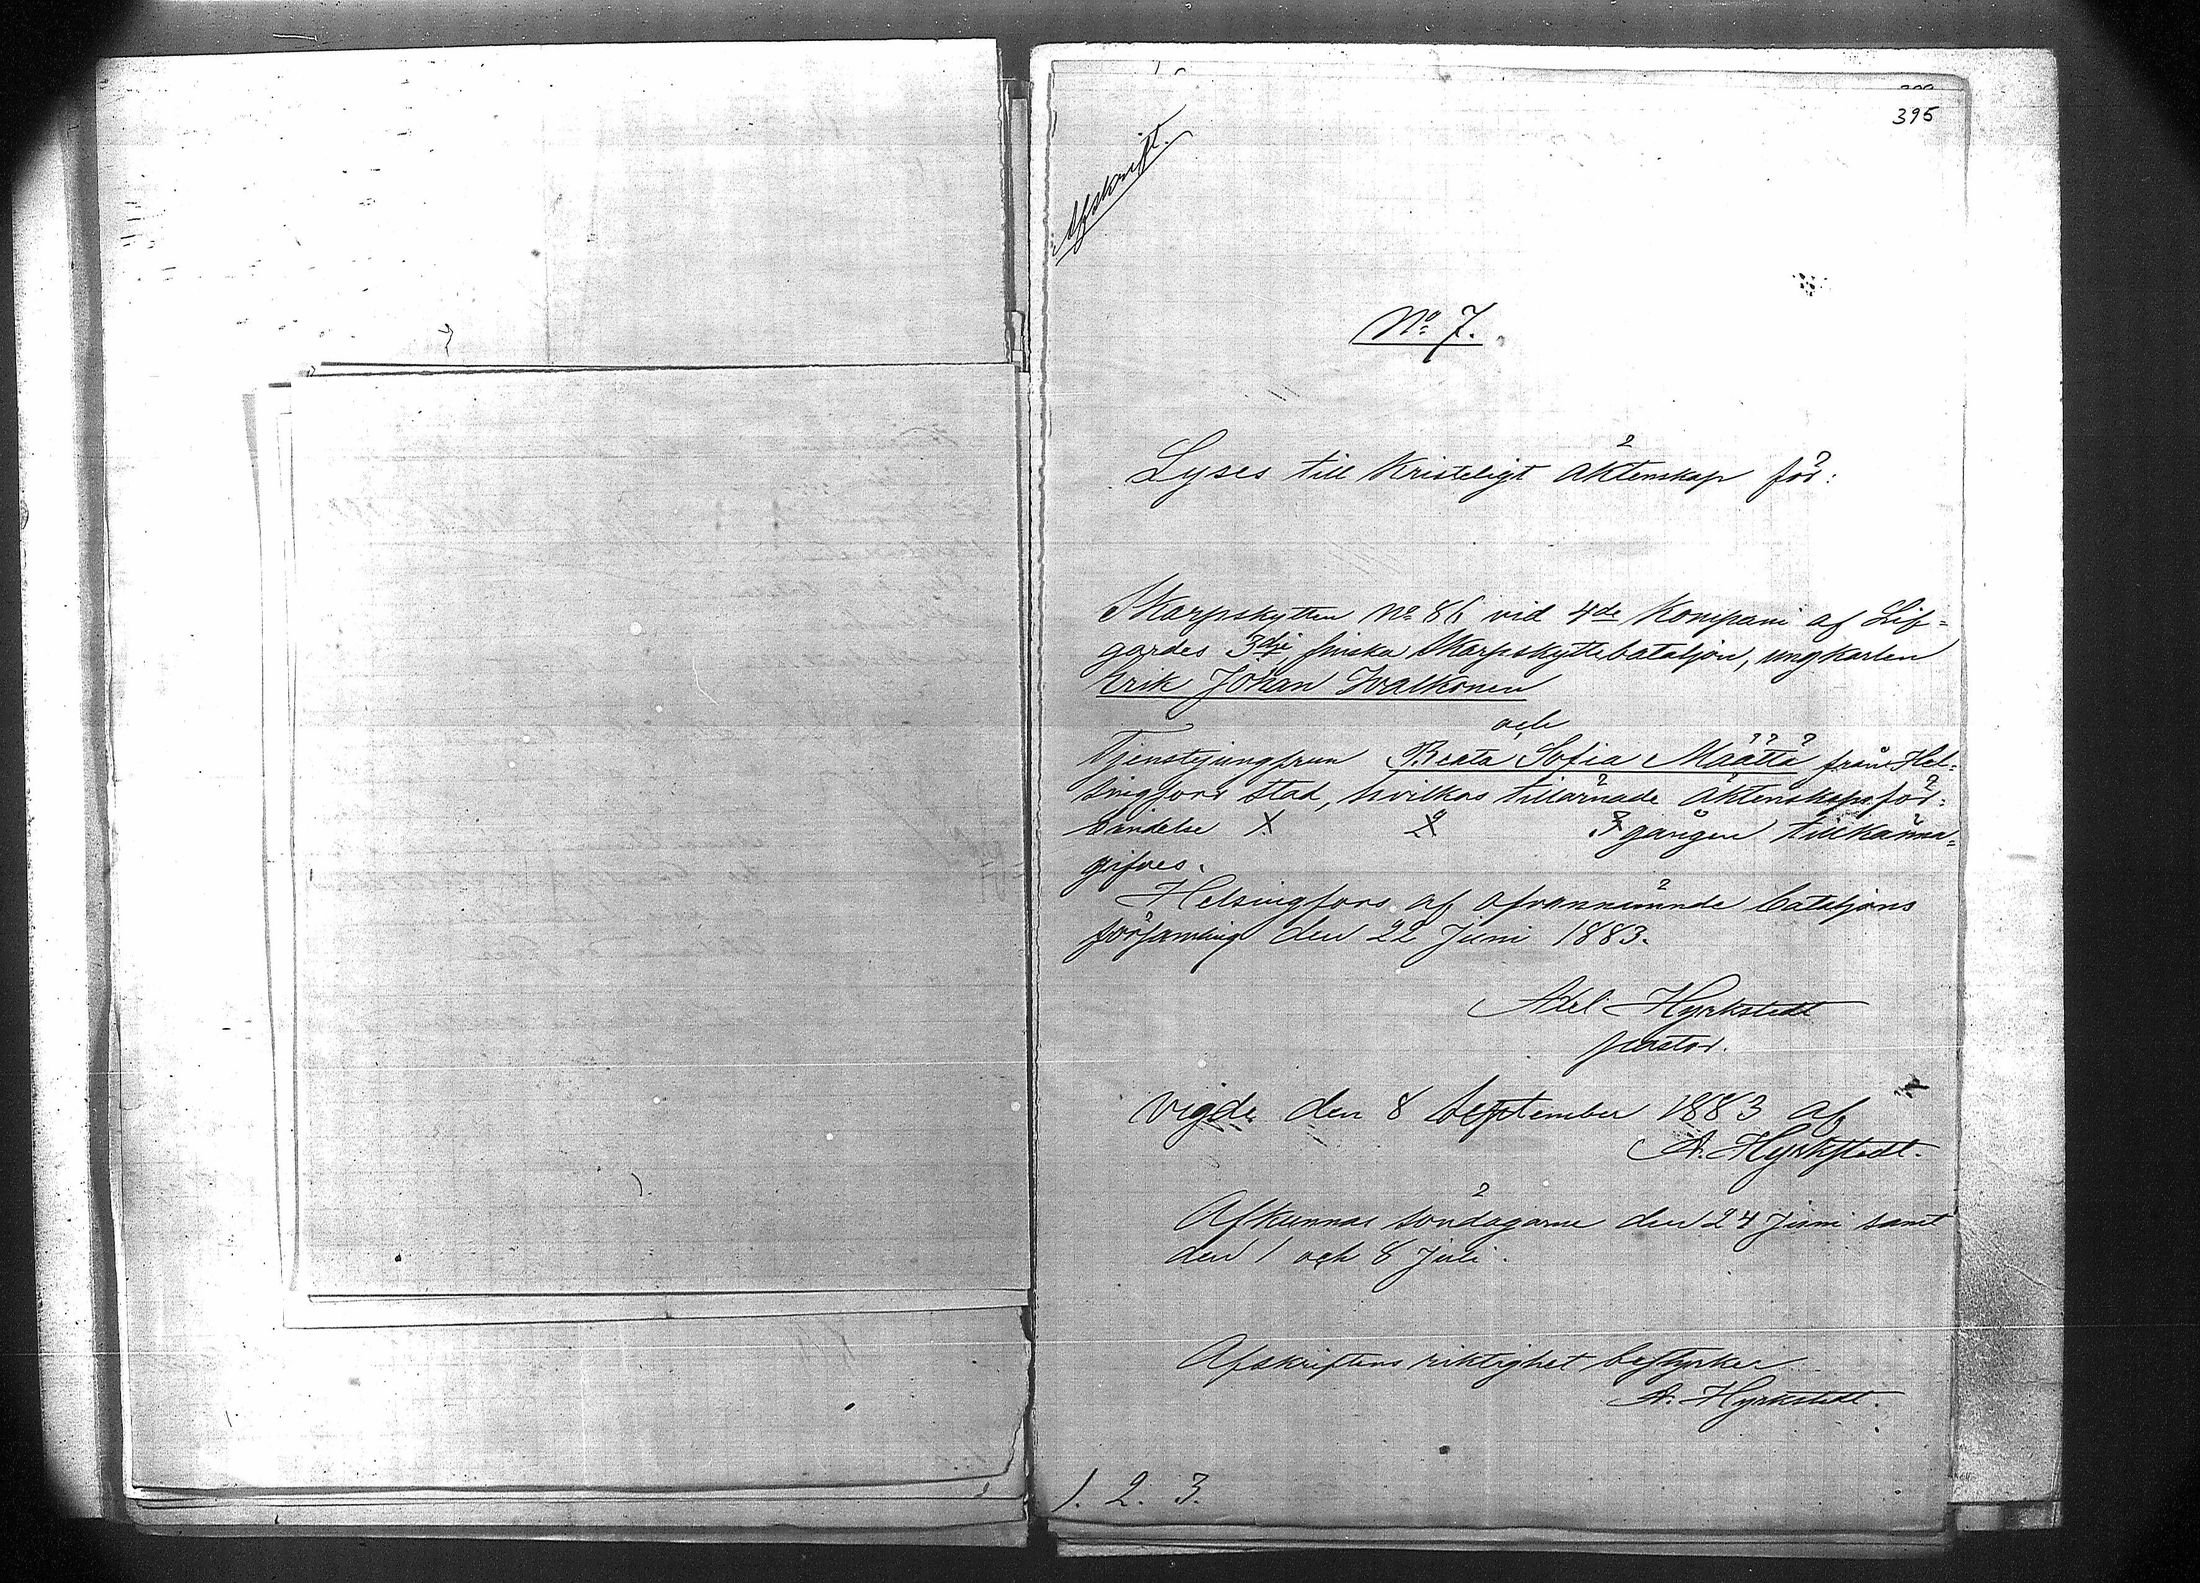 395
Afskrift.
No 7.
Lyses till Kristeligt äktenskap för:
Skarpskytten No 86 vid 4de Kompani af Lif-
gardes 3dje finska Skarpskyttebataljon, ungkarlen
Erik Johan Ivalkonen
och
Tjenstejungfrun Beata Sofia Määttä från Hel-
singfors stad, hvilkas tillärnade äktenskapsför-
bindelse 1 2 3 gången tillkänna-
gifves.
Helsingfors, af ofvannämnde bataljons
församling den 22 Juni 1883.
Axel Hyrkstedt
pastor.
Vigde den 8 September 1883 af
A. Hyrkstedt.
Afkunnas söndagarne den 24 Juni samt
den 1 och 8 Juli.
Afskriftens riktighet bestyrker
A. Hyrkstedt.
1. 2. 3.